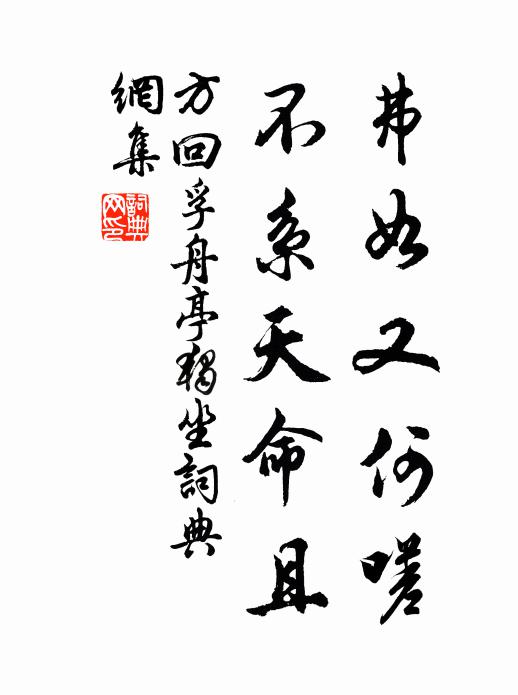 弗如又何嗟
不系天命且
方回孚舟亭獨坐詞典
網集
詞典
网印